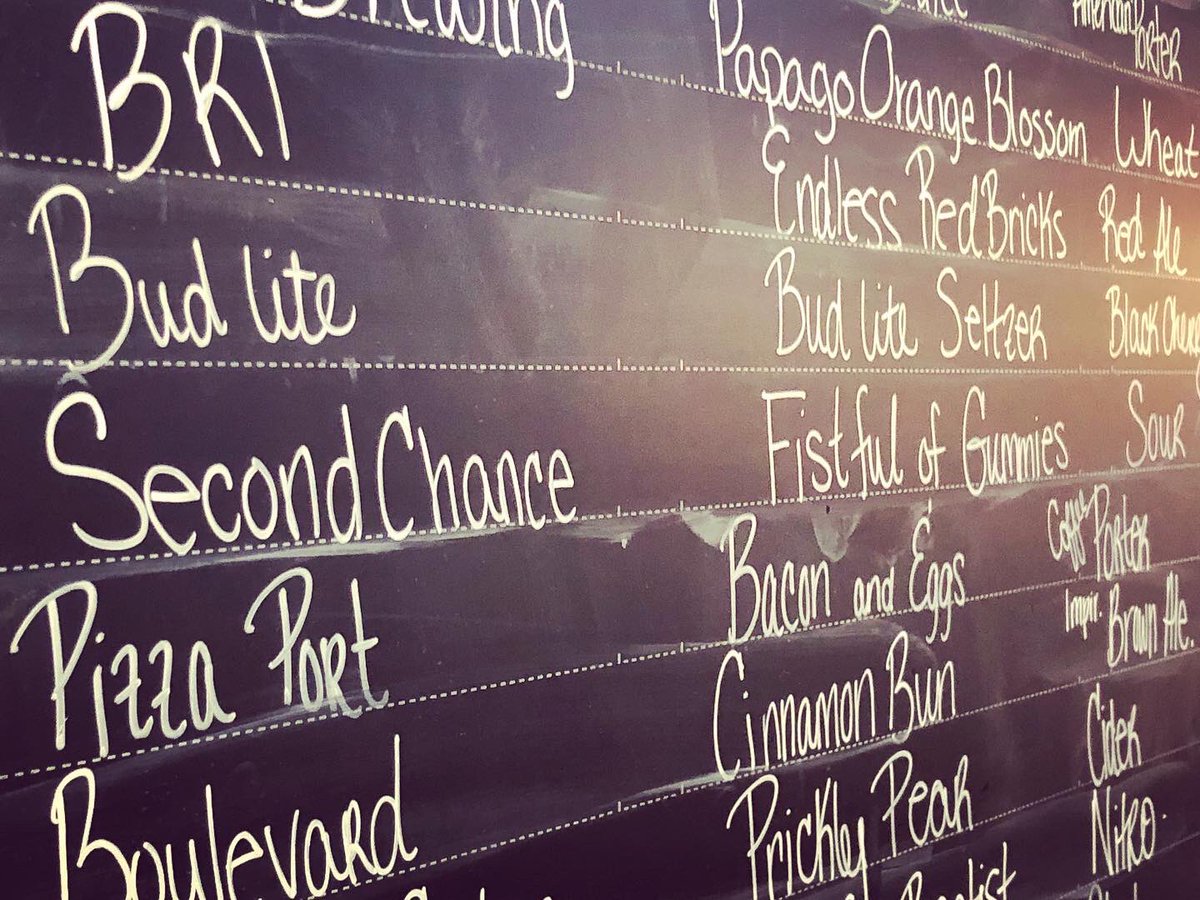 American Porter
Brewing Papago Orange Blossom Wheat
BRI Endless Red Bricks Red Ale
Bud lite Bud lite Seltzer Black
Second Chance Fistful of Gummies Sour
Pizza Port Bacon and Eggs Coffee Porter
Boulevard Cinnamon Bun Impr. Brown Ale.
Prickly Pear Cider
Baptist Nitro